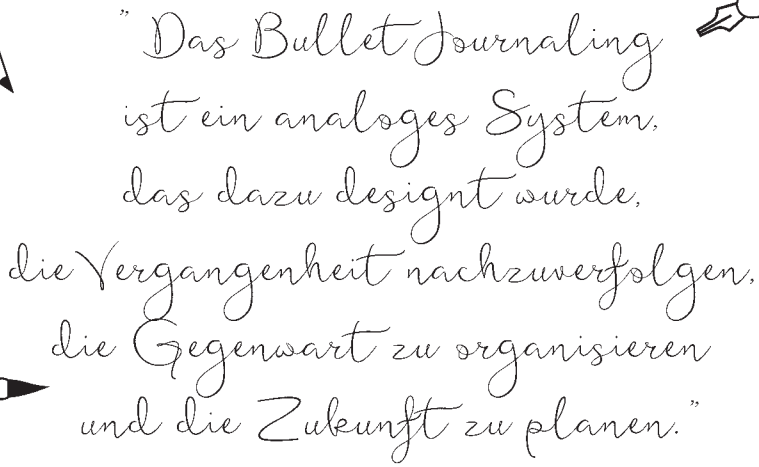 ” Das Bullet Journaling
ist ein analoges System,
das dazu designt wurde,
die Vergangenheit nachzuverfolgen,
die Gegenwart zu organisieren
und die Zukunft zu planen.”